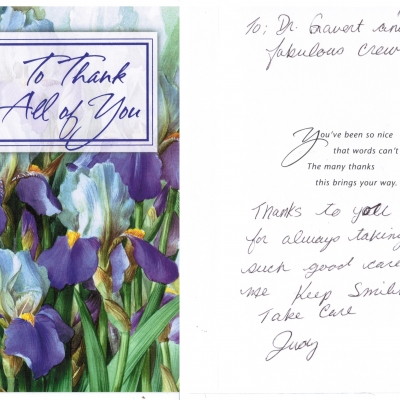 To Thank
All of You
To: Dr. Gravert and
fabulous crew
You've been so nice
that words can't
The many thanks
this brings your way.
Thanks to you
for always taking
such good care
me Keep Smilin
Take Care
Judy